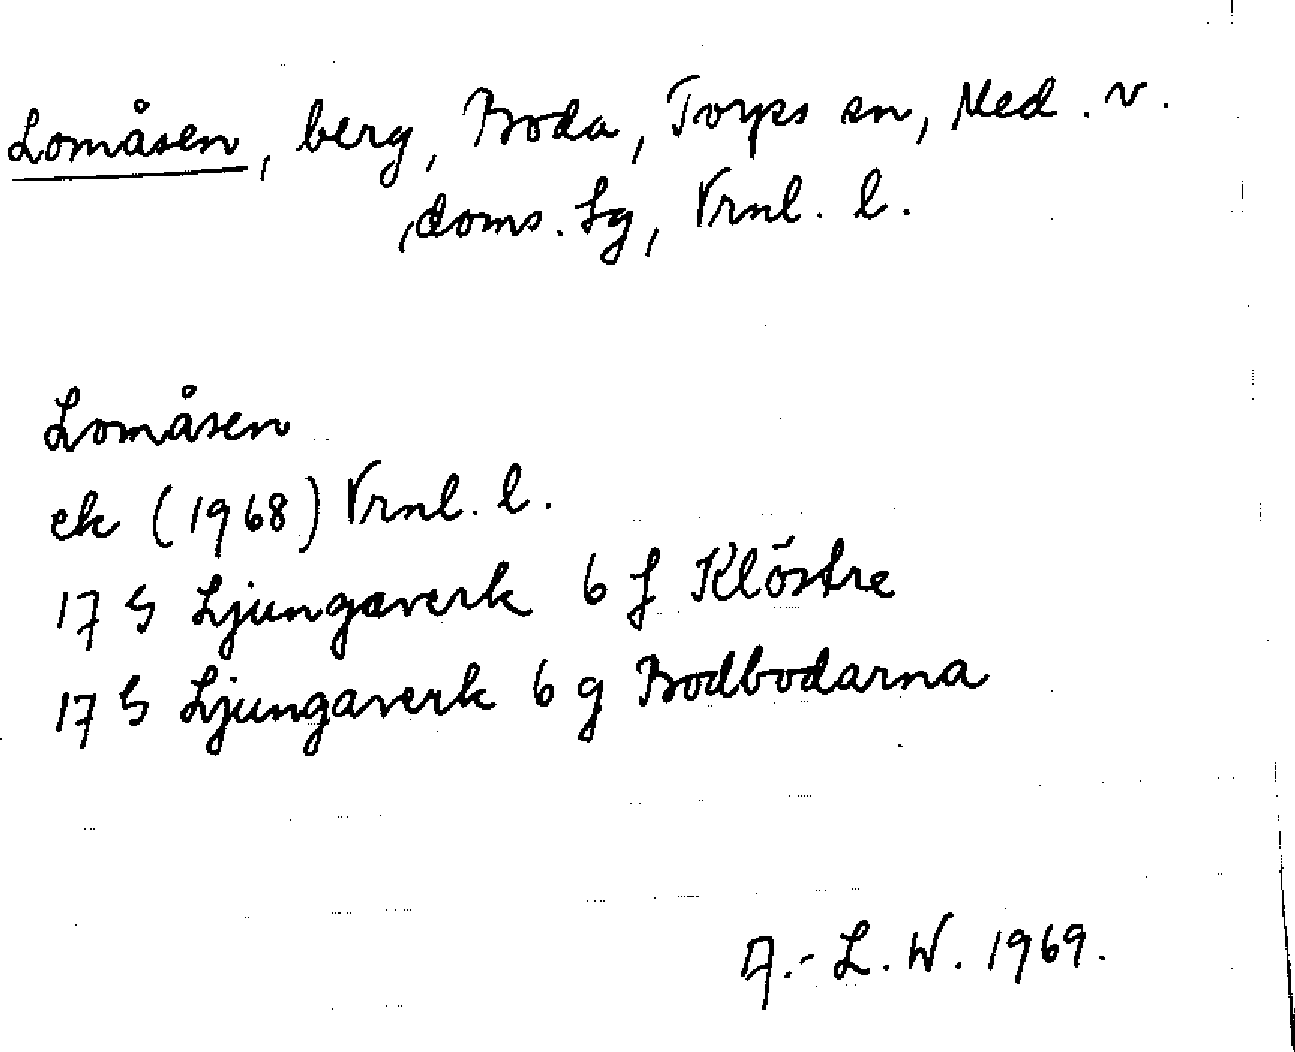 Lomåsen, berg, Boda, Torps sn, Med. v.
doms. Lg, Vrnl. l.
Lomåsen
ek (1968) Vrnl. l.
17 G Ljungaverk 6 f Klöstre
17 G Ljungaverk 6 g Bodbodarna
A.-L. W. 1969.